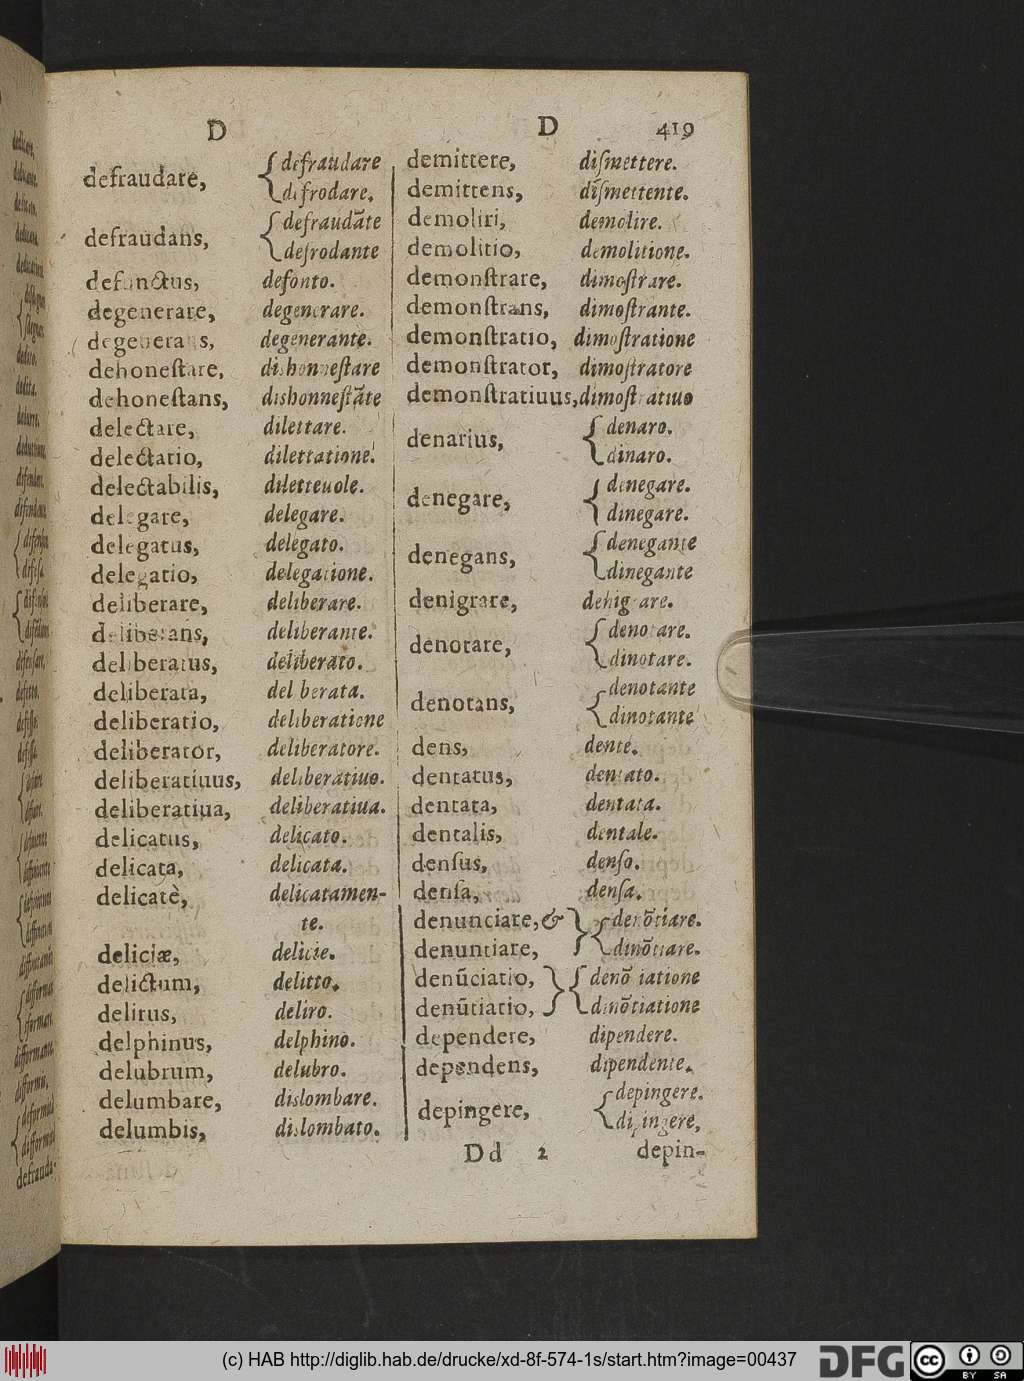 D D 419
defraudare, { defraudare
difrodare.
defraudans, { defraudāte
defrodante
defunctus, defonto.
degenerare, degenerare.
degenerans, degenerante.
dehoneſtare, dishonneſtare
dehoneſtans, dishonneſtāte
delectare, dilettare.
delectatio, dilettatione.
delectabilis, diletteuole.
delegare, delegare.
delegatus, delegato.
delegatio, delegatione.
deliberare, deliberare.
deliberans, deliberante.
deliberatus, deliberato.
deliberata, deliberata.
deliberatio, deliberatione
deliberator, deliberatore.
deliberatiuus, deliberatiuo.
deliberatiua, deliberatiua.
delicatus, delicato.
delicata, delicata.
delicatè, delicatamen-
te.
deliciæ, delicie.
delictum, delitto.
delirus, deliro.
delphinus, delphino.
delubrum, delubro.
delumbare, dislombare.
delumbis, dislombato.
demittere, diſmettere.
demittens, diſmettente.
demoliri, demolire.
demolitio, demolitione.
demonſtrare, dimoſtrare.
demonſtrans, dimoſtrante.
demonſtratio, dimoſtratione
demonſtrator, dimoſtratore
demonſtratiuus, dimoſtratiuo
denarius, { denaro.
dinaro.
denegare, { denegare.
dinegare.
denegans, { denegante
dinegante
denigrare, denigrare.
denotare, { denotare.
dinotare.
denotans, { denotante
dinotante
dens, dente.
dentatus, dentato.
dentata, dentata.
dentalis, dentale.
denſus, denſo.
denſa, denſa.
denunciare, & } { denōtiare.
denuntiare, dinōtiare.
denūciatio, } { denōtiatione
denūtiatio, dinōtiatione
dependere, dipendere.
dependens, dipendente.
depingere, { depingere.
dipingere,
Dd 2 depin-
(c) HAB http://diglib.hab.de/drucke/xd-8f-574-1s/start.htm?image=00437
DFG
cc BY SA